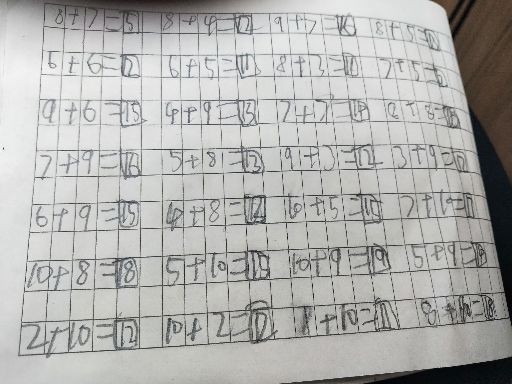 8+7=15 8+4=12 9+7=16 8+5=13
6+6=12 6+5=11 8+3=11 7+5=12
9+6=15 4+9=13 7+7=14 8+8=16
7+9=16 5+8=13 9+3=12 3+9=12
6+9=15 4+8=12 10+5=15 7+10=17
10+8=18 5+10=15 10+9=19 5+9=14
2+10=12 10+2=12 1+10=11 8+10=18